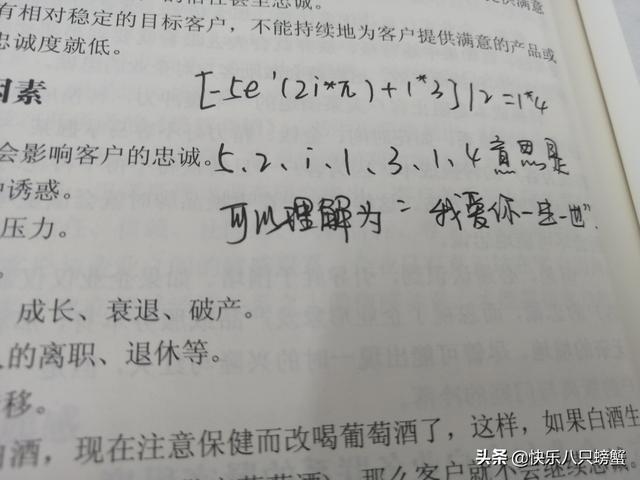 有相对稳定的目标客户，不能持续地为客户提供满意的产品或
忠诚度就低。
因素
[-5e'(2i*π)+1*3]/2=1*4
会影响客户的忠诚。
5、2、i、1、3、1、4意思是
诱惑。
可以理解为=我爱你一生一世"
压力。
成长、衰退、破产。
的离职、退休等。
移。
白酒，现在注意保健而改喝葡萄酒了，这样，如果白酒生
那么客户就不会继续忠诚。
头条@快乐八只螃蟹